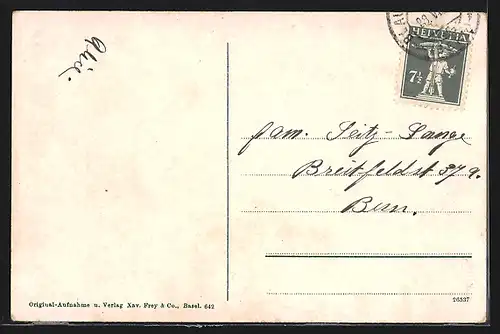 Alice
HELVETIA
7½
Fam. Seitz-Lange
Breitfeldst 37a.
Bern.
Original-Aufnahme u. Verlag Xav. Frey & Co., Basel. 642
26337